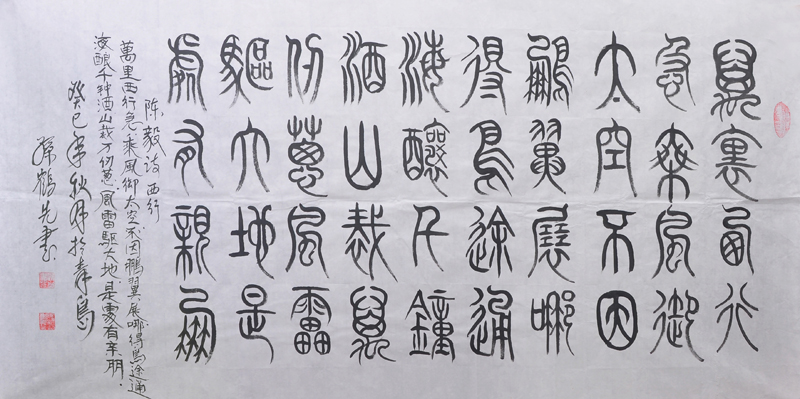 萬里西行
急乘風御
太空不因
鵬翼展哪
得鳥途通
海釀千鐘
酒山裁萬
仞蔥風雷
驅大地是
處有親朋
陈毅诗西行
萬里西行急乘風御太空不因鵬翼展哪得鳥途通
海酿千钟酒山裁万仞葱風雷驅大地是處有亲朋
癸巳年秋月於青島
孫鶴先書